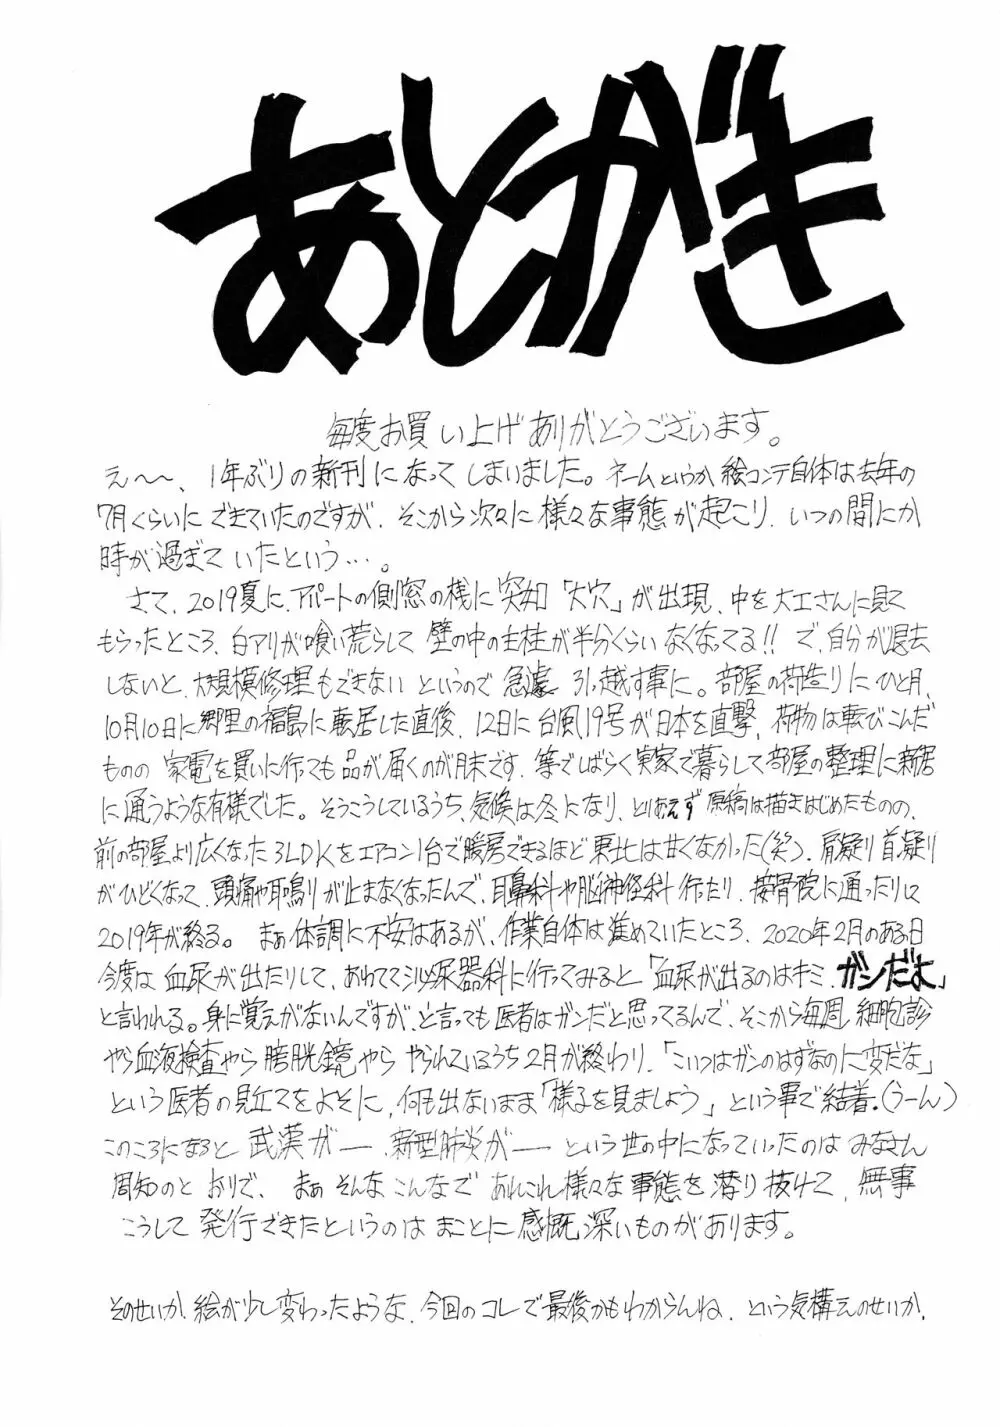 あとがき
毎度お買い上げありがとうございます。
え〜〜、1年ぶりの新刊になってしまいました。ネームというか絵コンテ自体は去年の
7月くらいにできていたのですが、そこから次々に様々な事態が起こり、いつの間にか
時が過ぎていたという…。
さて、2019夏に、アパートの側窓の桟に突如「大穴」が出現、中を大工さんに見て
もらったところ、白アリが喰い荒らして壁の中の主柱が半分くらいなくなってる!!で、自分が退去
しないと、大規模修理もできないというので急遽引っ越す事に。部屋の荷造りにひと月、
10月10日に郷里の福島に転居した直後、12日に台風19号が日本を直撃、荷物は転びこんだ
ものの家電を買いに行っても品が届くのが月末です、等でしばらく実家で暮らして部屋の整理に新居
に通うような有様でした。そうこうしているうち、気候は冬になり、とりあえず原稿は描きはじめたものの、
前の部屋より広くなった3LDKをエアコン1台で暖房できるほど東北は甘くなかった(笑)。肩凝り首凝り
がひどくなって、頭痛や耳鳴りが止まなくなったんで、耳鼻科や脳神経科行ったり、接骨院に通ったりして
2019年が終る。まぁ体調に不安はあるが、作業自体は進めていたところ、2020年2月のある日
今度は血尿が出たりして、あわてて泌尿器科に行ってみると「血尿が出るのはキミ、ガンだよ」
と言われる。身に覚えがないんですが、と言っても医者はガンだと思ってるんで、そこから毎週細胞診
やら血液検査やら膀胱鏡やらやられているうち2月が終わり、「こいつはガンのはずなのに変だな」
という医者の見立てをよそに、何も出ないまま「様子を見ましょう」という事で結着。(うーん)
このころになると武漢が——新型肺炎が——という世の中になっていったのはみなさん
周知のとおりで、まぁそんなこんなであれこれ様々な事態を潜り抜けて、無事
こうして発行できたというのはまことに感慨深いものがあります。
そのせいか、絵が少し変わったような、今回のコレで最後かもわからんね、という気構えのせいか、